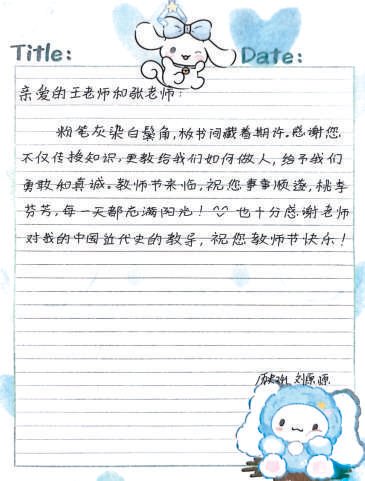 Title: Date:
亲爱的王老师和张老师:
粉笔灰染白鬓角,板书间藏着期许。感谢您
不仅传授知识,更教给我们如何做人,给予我们
勇敢和真诚。教师节来临,祝您事事顺遂,桃李
芬芳,每一天都充满阳光! 也十分感谢老师
对我的中国近代史的教导,祝您教师节快乐!
刘原源